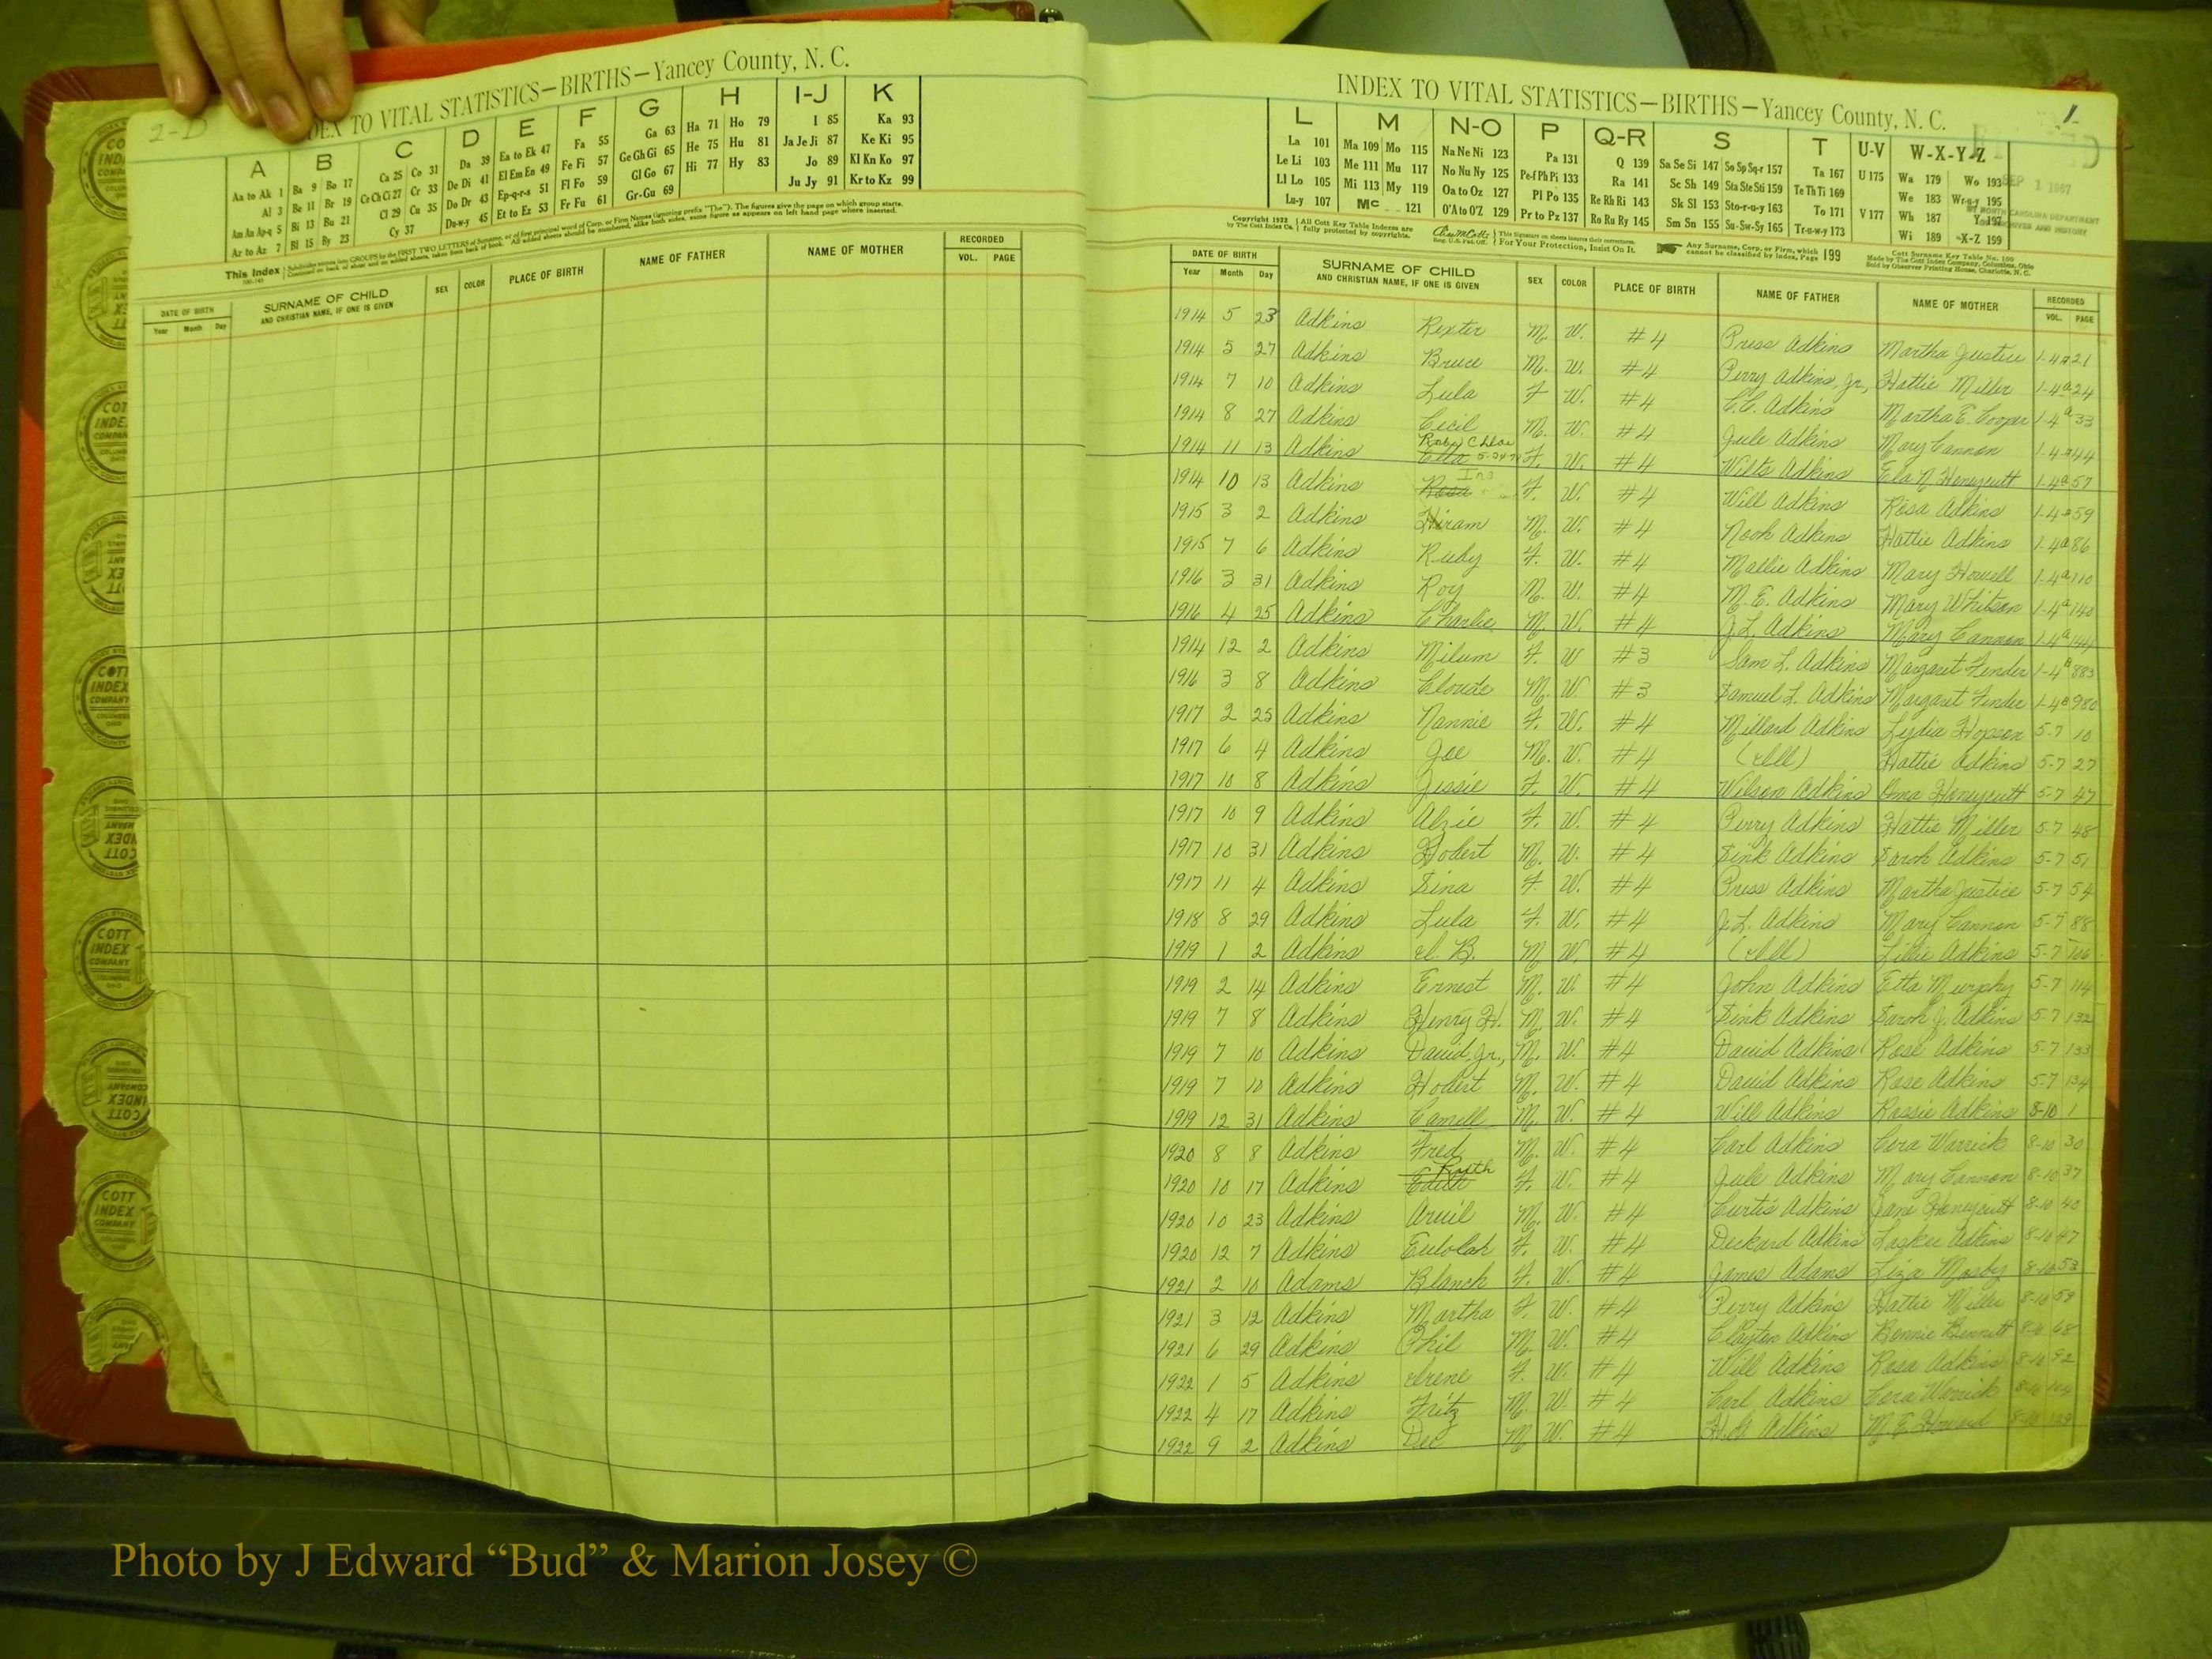 2-D
INDEX TO VITAL STATISTICS—BIRTHS—Yancey County, N. C.
A B C D E F G H I-J K
Aa to Ak 1 Ba 9 Bo 17 Ca 25 Co 31 Da 39 Ea to Ek 47 Fa 55 Ga 63 Ha 71 Ho 79 I 85 Ka 93
Al 3 Be 11 Br 19 Ce Ch Ci 27 Cr 33 De Di 41 El Em En 49 Fe Fi 57 Ge Gh Gi 65 He 75 Hu 81 Ja Je Ji 87 Ke Ki 95
Am An Ap-q 5 Bi 13 Bu 21 Cl 29 Cu 35 Do Dr 43 Ep-q-r-s 51 Fl Fo 59 Gl Go 67 Hi 77 Hy 83 Jo 89 Kl Kn Ko 97
Ar to Az 7 Bl 15 By 23 Cy 37 Du-w-y 45 Et to Ez 53 Fr Fu 61 Gr-Gu 69 Ju Jy 91 Kr to Kz 99
This Index
DATE OF BIRTH SURNAME OF CHILD SEX COLOR PLACE OF BIRTH NAME OF FATHER NAME OF MOTHER RECORDED
Year Month Day AND CHRISTIAN NAME, IF ONE IS GIVEN VOL. PAGE
INDEX TO VITAL STATISTICS—BIRTHS—Yancey County, N. C. 1
L M N-O P Q-R S T U-V W-X-Y-Z
La 101 Ma 109 Mo 115 Na Ne Ni 123 Pa 131 Q 139 Sa Se Si 147 So Sp Sq-r 157 Ta 167 U 175 Wa 179 Wo 193
Le Li 103 Me 111 Mu 117 No Nu Ny 125 Pe-f Ph Pi 133 Ra 141 Sc Sh 149 Sta Ste Sti 159 Te Th Ti 169 We 183 Wr-u-y 195
Ll Lo 105 Mi 113 My 119 Oa to Oz 127 Pl Po 135 Re Rh Ri 143 Sk Sl 153 Sto-r-u-y 163 To 171 V 177 Wh 187 Y 197
Lu-y 107 Mc 121 O'A to O'Z 129 Pr to Pz 137 Ro Ru Ry 145 Sm Sn 155 Su-Sw-Sy 165 Tr-u-w-y 173 Wi 189 X-Z 199
SEP 1 1967
Copyright 1932 by The Cott Index Co. All Cott Key Table Indexes are fully protected by copyrights. For Your Protection, Insist On It. Any Surname, Corp. or Firm, which cannot be classified by Index, Page 199
Cott Surname Key Table No. 100
Made by The Cott Index Company, Columbus, Ohio
Sold by Observer Printing House, Charlotte, N. C.
DATE OF BIRTH SURNAME OF CHILD SEX COLOR PLACE OF BIRTH NAME OF FATHER NAME OF MOTHER RECORDED
Year Month Day AND CHRISTIAN NAME, IF ONE IS GIVEN VOL. PAGE
1914 5 23 Adkins Rexter M. W. #4 Press Adkins Martha Justice 1-4a 21
1914 5 27 Adkins Bruce M. W. #4 Perry Adkins, Jr., Hattie Miller 1-4a 24
1914 7 10 Adkins Lula F W. #4 C.C. Adkins Martha E. Cooper 1-4a 33
1914 8 27 Adkins Cecil M. W. #4 Jule Adkins Mary Cannon 1-4a 44
Chloe
1914 11 13 Adkins Etta F. W. #4 Wilts Adkins Ela N. Honeycutt 1-4a 57
1914 10 13 Adkins Rosa F. W. #4 Will Adkins Rosa Adkins 1-4a 59
1915 3 2 Adkins Hiram M. W. #4 Noah Adkins Hattie Adkins 1-4a 86
1915 7 6 Adkins Ruby F. W. #4 Mallie Adkins Mary Howell 1-4a 110
1916 3 31 Adkins Roy M. W. #4 M.E. Adkins Mary Whitson 1-4a 140
1916 4 25 Adkins Charlie M. W. #4 J.L. Adkins Mary Cannon 1-4a 144
1914 12 2 Adkins Milum F. W #3 Sam L. Adkins Margaret Fender 1-4B 883
1916 3 8 Adkins M. W #3 Samuel L. Adkins Margaret Fender 1-4B 980
1917 2 25 Adkins Nannie F. W. #4 Millard Adkins Lydia Hopson 5-7 10
1917 6 4 Adkins Joe M. W. #4 (Ill) Hattie Adkins 5-7 27
1917 10 8 Adkins Jessie F. W. #4 Wilson Adkins Honeycutt 5-7 47
1917 10 9 Adkins Alzie F. W. #4 Perry Adkins Hattie Miller 5-7 48
1917 10 31 Adkins Hobert M. W. #4 Sink Adkins Sarah Adkins 5-7 51
1917 11 4 Adkins Sina F. W. #4 Press Adkins Martha Justice 5-7 54
1918 8 29 Adkins Lula F. W. #4 J.L. Adkins Mary Cannon 5-7 88
1919 1 2 Adkins M. W. #4 (Ill) Lillie Adkins 5-7 106
1919 2 14 Adkins Ernest M. W. #4 John Adkins Etta Murphy 5-7 114
1919 7 8 Adkins Henry H. M. W. #4 Sink Adkins Sarah J. Adkins 5-7 132
1919 7 10 Adkins David, Jr., M. W. #4 David Adkins Rose Adkins 5-7 133
1919 7 10 Adkins Hobert M. W. #4 David Adkins Rose Adkins 5-7 134
1919 12 31 Adkins Carrell M. W. #4 Will Adkins Rossie Adkins 8-10 1
1920 8 8 Adkins Fred M. W. #4 Carl Adkins Cora Warrick 8-10 30
Ruth
1920 10 17 Adkins Edith F. W. #4 Jule Adkins Mary Cannon 8-10 37
1920 10 23 Adkins Arvil M. W. #4 Curtis Adkins Jane Honeycutt 8-10 40
1920 12 7 Adkins Eulolah F. W. #4 Deckard Adkins Adkins 8-10 47
1921 2 10 Adams Blanch F. W. #4 James Adams Liza Mosby 8-10 53
1921 3 12 Adkins Martha F. W. #4 Perry Adkins Hattie Miller 8-10 59
1921 6 29 Adkins Phil M. W. #4 Clayton Adkins Bonnie Bennett 8-10 68
1922 1 5 Adkins Irene F. W. #4 Will Adkins Rosa Adkins 8-10 92
1922 4 17 Adkins Fritz M. W. #4 Carl Adkins Cora Warrick 8-10
1922 9 2 Adkins Dee M W. #4 Adkins M.E. 8-10
Photo by J Edward “Bud” & Marion Josey ©